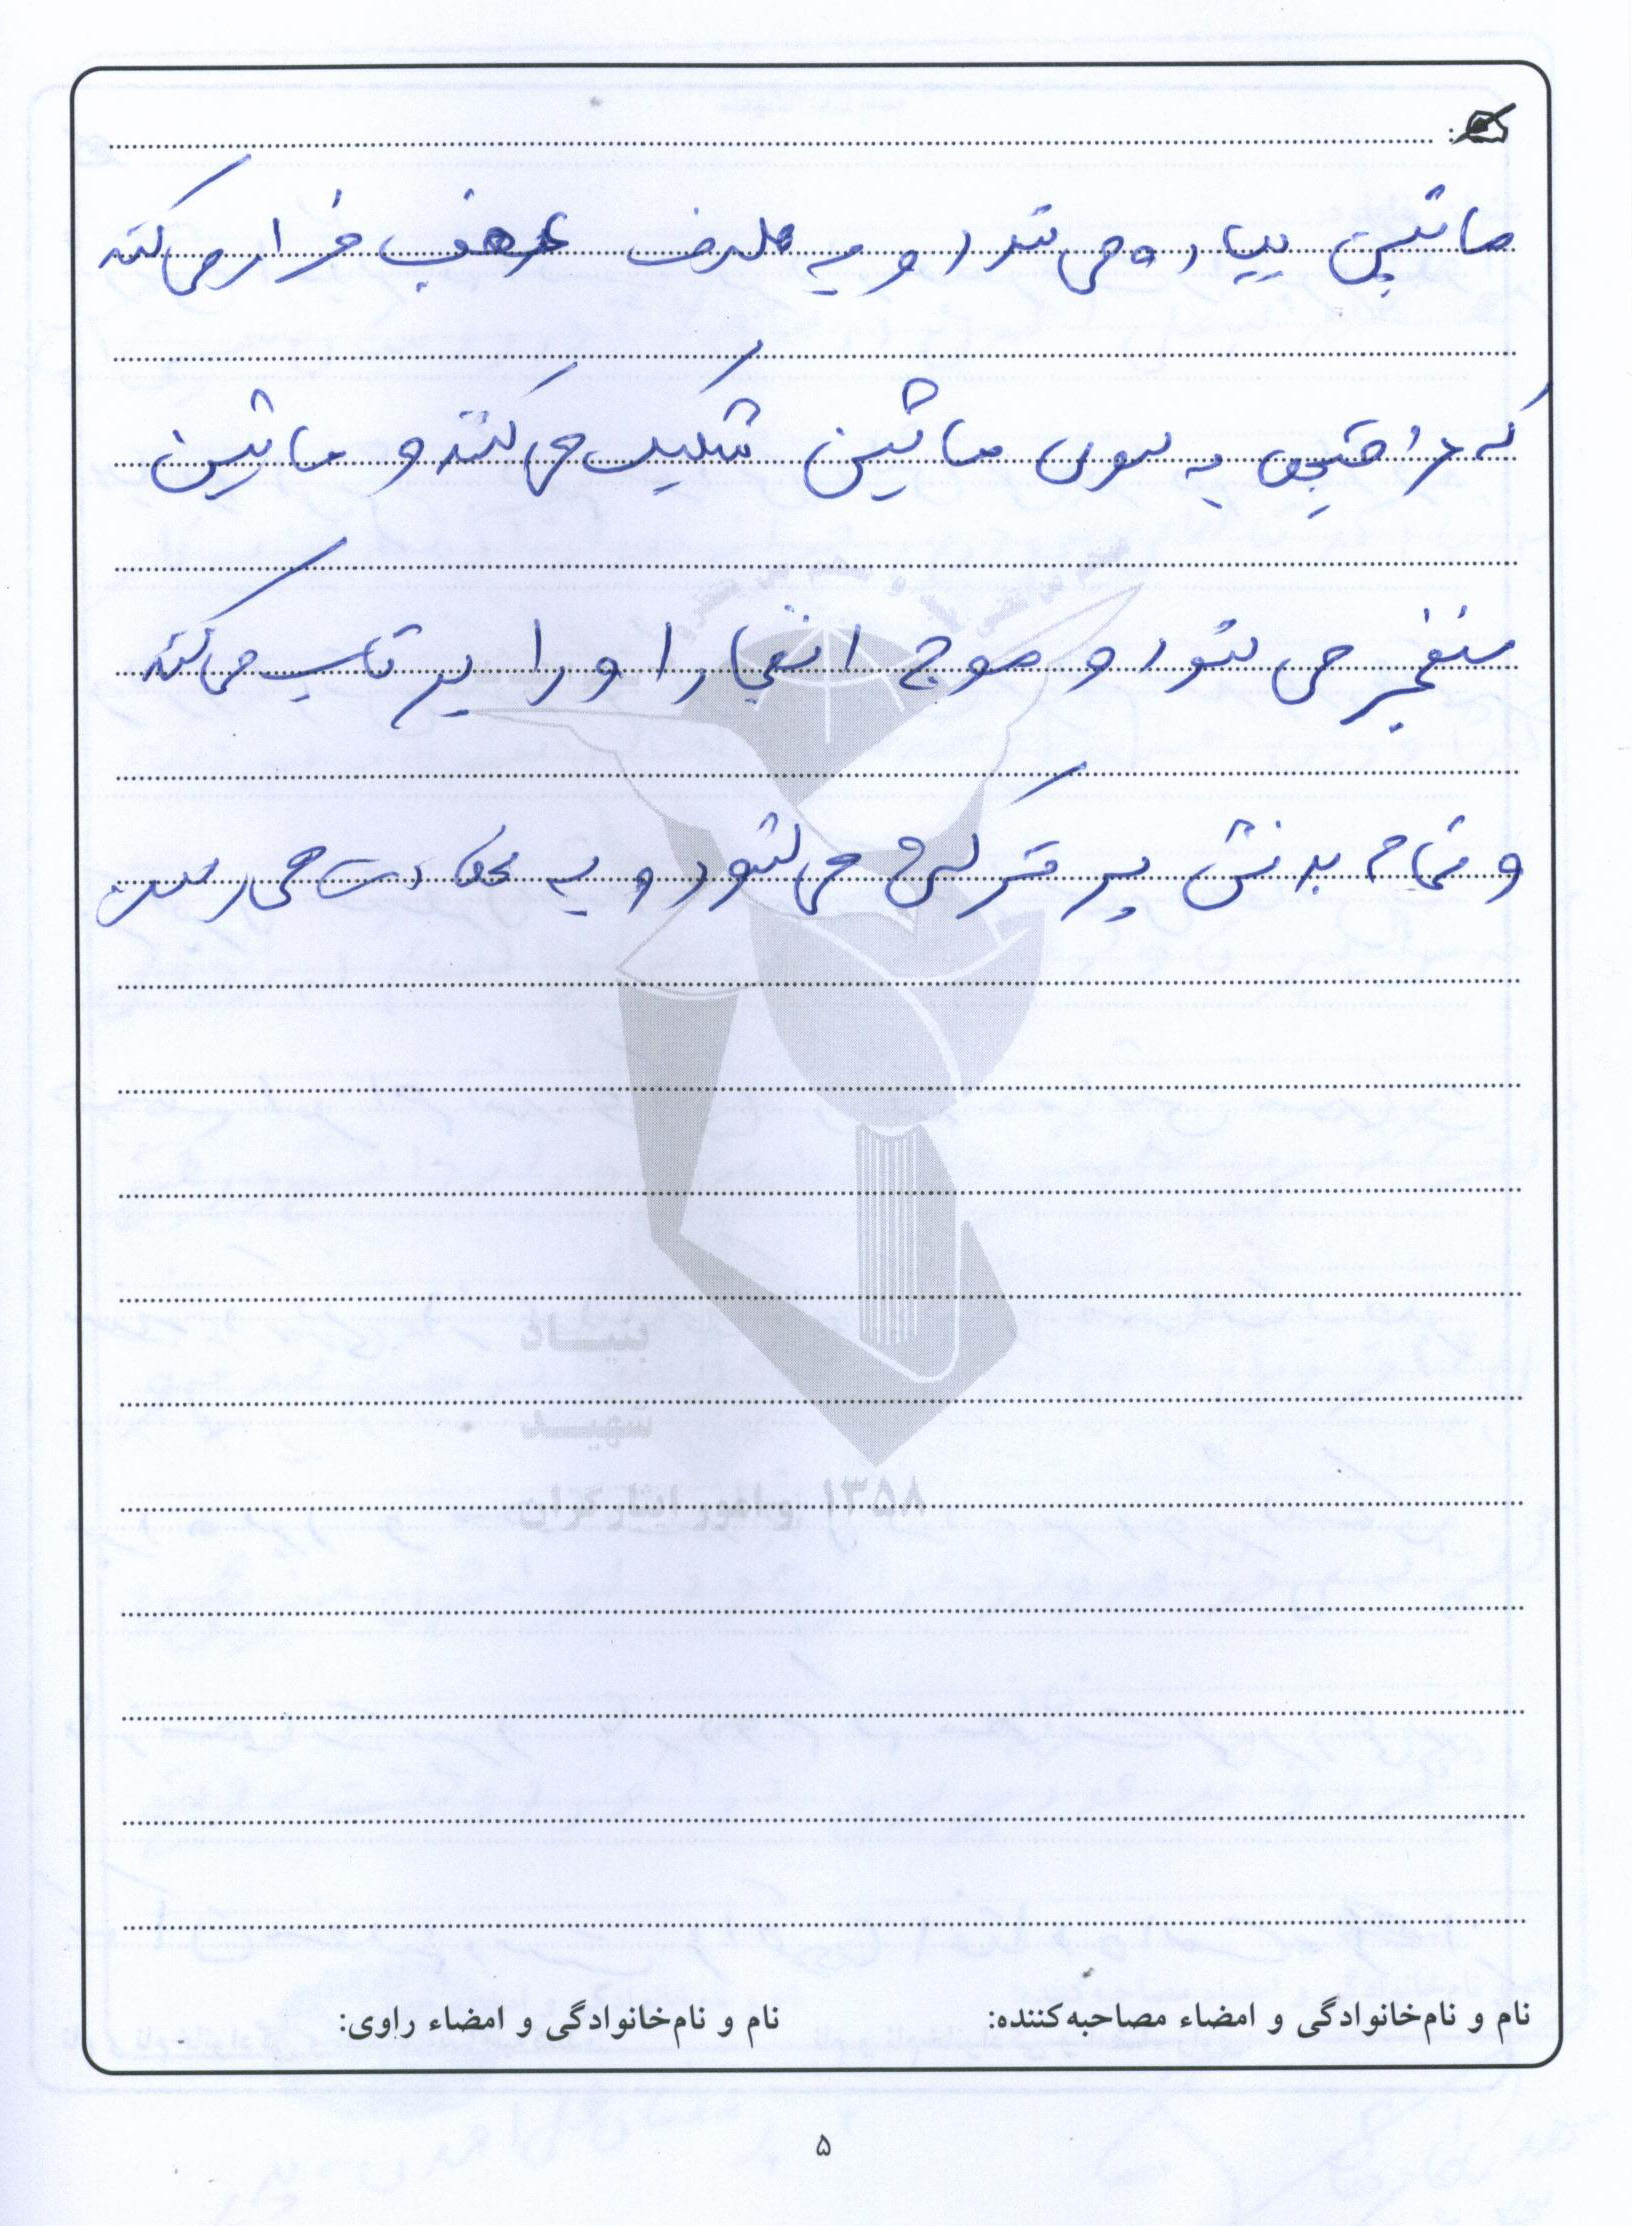 ماشین پیاده می شود و به طرف عقب فرار می کند
که عراقیها به سوی ماشین شلیک می کنند و ماشین
منفجر می شود و موج انفجار او را پرتاب می کند
و تمام بدنش پر ترکش می شود و به شهادت می رسد
بنیاد
شهید
و امور ایثارگران ۱۳۵۸
نام و نام‌خانوادگی و امضاء مصاحبه‌کننده: نام و نام‌خانوادگی و امضاء راوی:
۵